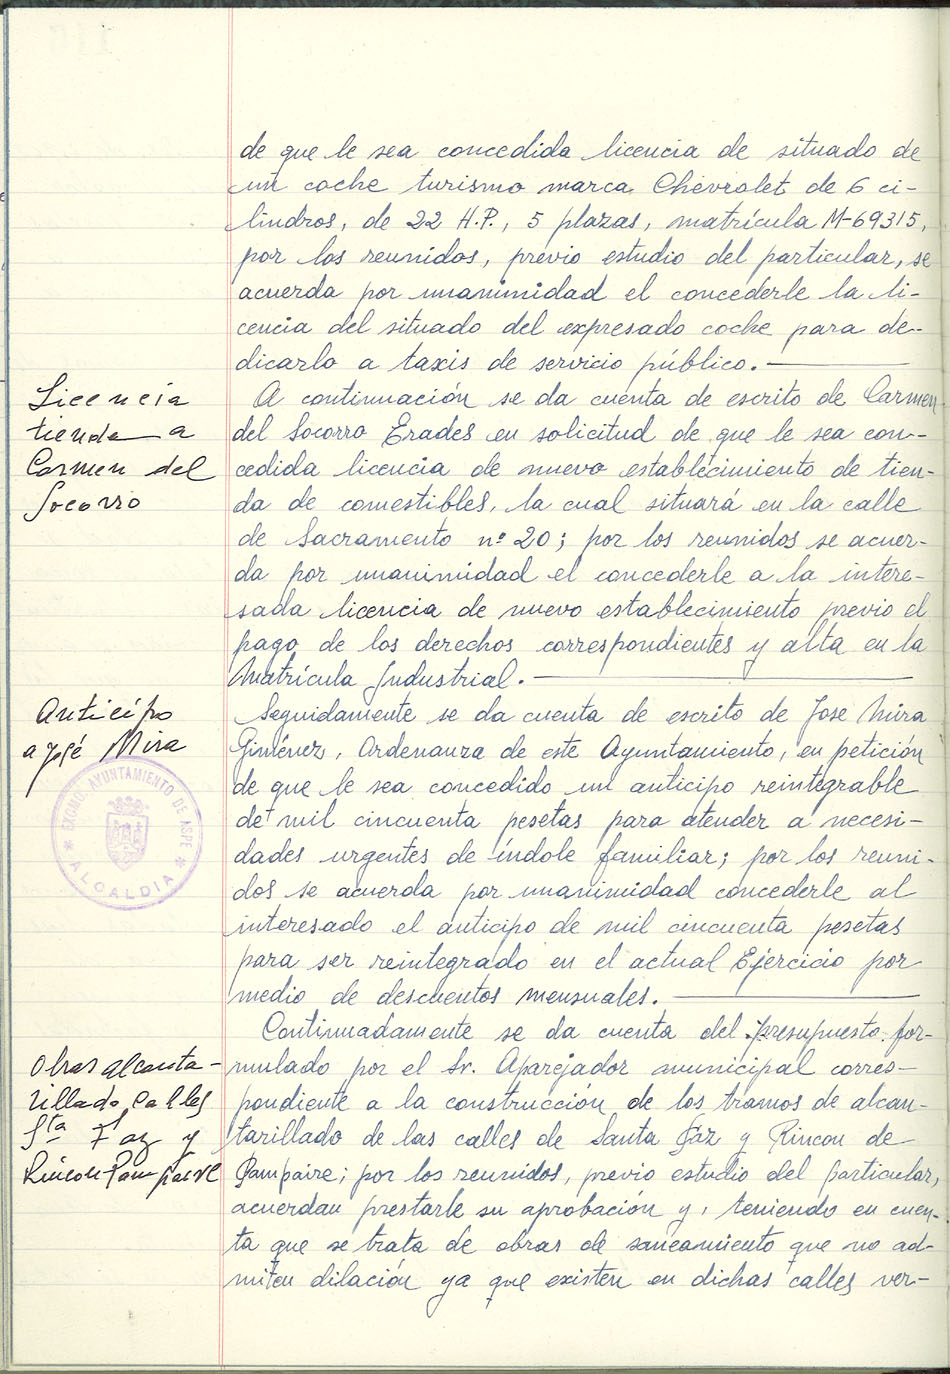 de que le sea concedida licencia de situado de
un coche turismo marca Chevrolet de 6 ci-
lindros, de 22 H.P., 5 plazas, matrícula M-69315,
por los reunidos, previo estudio del particular, se
acuerda por unanimidad el concederle la li-
cencia del situado del expresado coche para de-
dicarlo a taxis de servicio público.
Licencia
tienda a
Carmen del
Socorro
A continuación se da cuenta de escrito de Carmen
del Socorro Erades en solicitud de que le sea con-
cedida licencia de nuevo establecimiento de tien-
da de comestibles, la cual situará en la calle
de Sacramento nº 20; por los reunidos se acuer-
da por unanimidad el concederle a la intere-
sada licencia de nuevo establecimiento previo el
pago de los derechos correspondientes y alta en la
Matrícula Industrial.
Anticipo
a José Mira
EXCMO. AYUNTAMIENTO DE ASPE
* ALCALDIA *
Seguidamente se da cuenta de escrito de Jose Mira
Giménez, Ordenanza de este Ayuntamiento, en petición
de que le sea concedido un anticipo reintegrable
de mil cincuenta pesetas para atender a necesi-
dades urgentes de índole familiar; por los reuni-
dos se acuerda por unanimidad concederle al
interesado el anticipo de mil cincuenta pesetas
para ser reintegrado en el actual Ejercicio por
medio de descuentos mensuales.
Obras alcanta-
rillado Calles
Sta Faz y
Rincon Pampaire
Continuadamente se da cuenta del presupuesto for-
mulado por el Sr. Aparejador municipal corres-
pondiente a la construcción de los tramos de alcan-
tarillado de las calles de Santa Faz y Rincon de
Pampaire; por los reunidos, previo estudio del particular,
acuerdan prestarle su aprobación y, teniendo en cuen-
ta que se trata de obras de saneamiento que no ad-
miten dilación ya que existen en dichas calles ver-